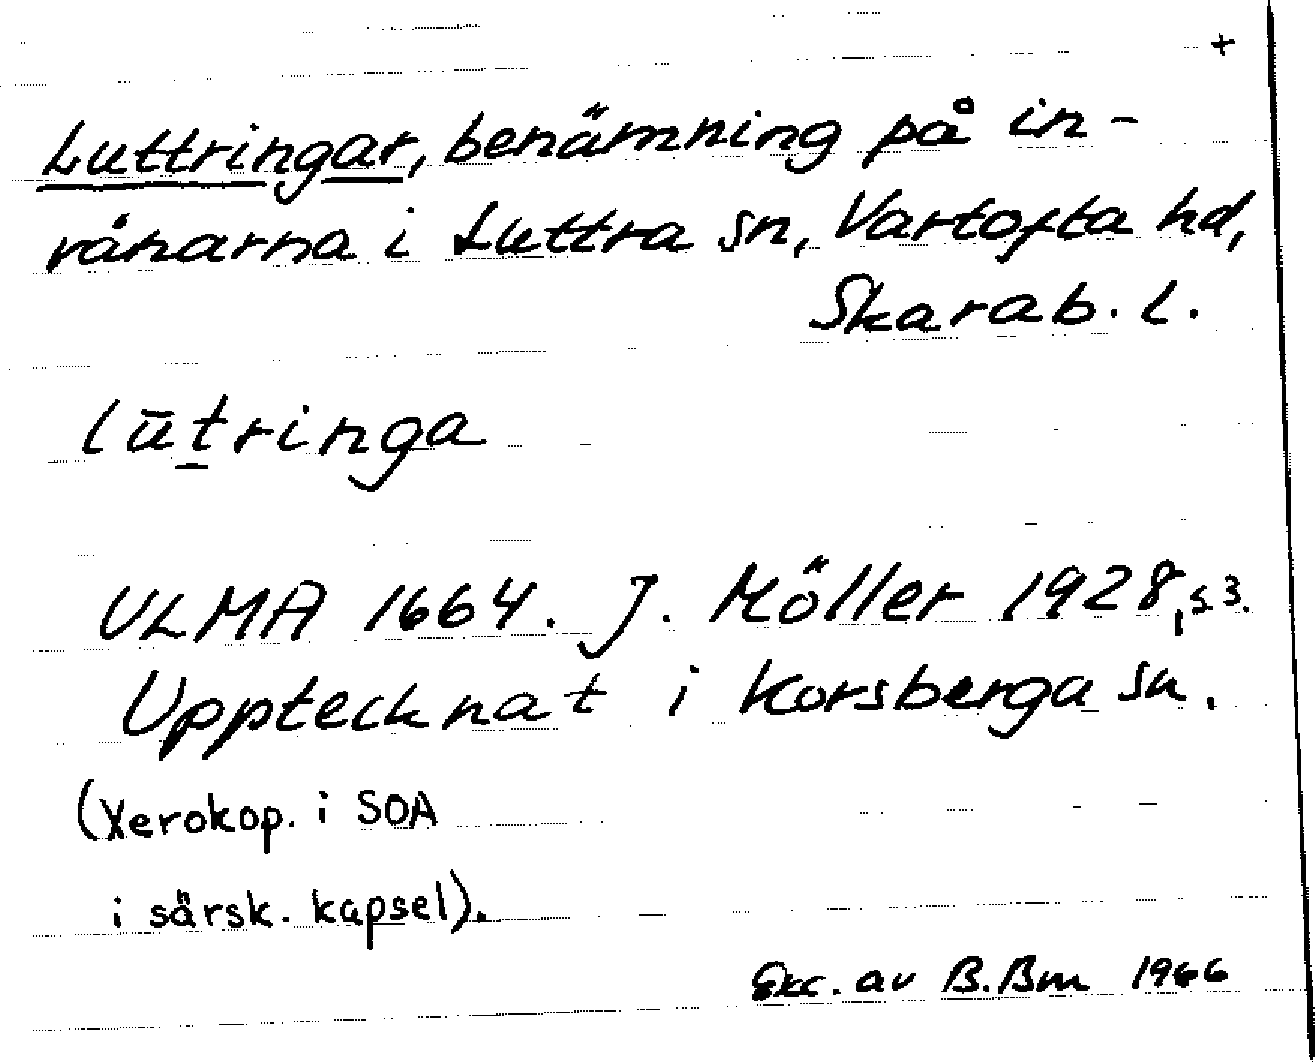 +
Luttringar, benämning på in-
vånarna i Luttra sn, Vartofta hd,
Skarab. l.
lūt̲ringa
ULMA 1664. J. Möller 1928, s 3.
Upptecknat i Korsberga sn.
(Xerokop. i SOA
i särsk. kapsel).
Exc. av B. Bm 1966